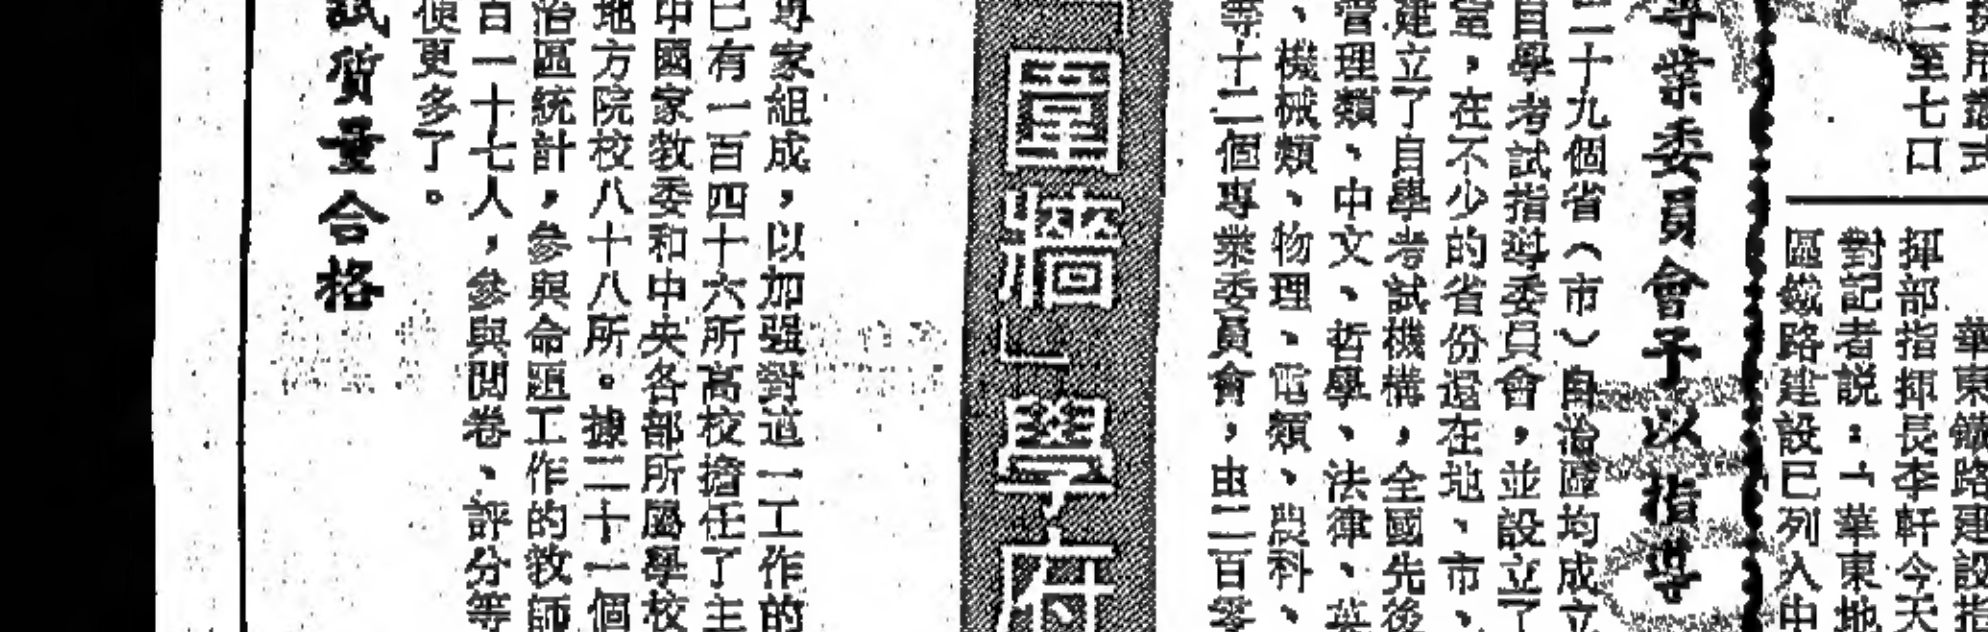 揮部指揮長李軒今天
對記者說：「華東地
區鐵路建設已列入中
專業委員會予以指導
二十九個省（市）自治區均成立
自學考試指導委員會，並設立了
室，在不少的省份還在地、市、
建立了自學考試機構，全國先後
管理類、中文、哲學、法律、英
、機械類、物理、電類、農科、
等十二個專業委員會，由二百零
圍牆」學府
專家組成，以加强對這一工作的
已有一百四十六所高校擔任了主
中國家教委和中央各部所屬學校
地方院校八十八所。據二十一個
治區統計，參與命題工作的教師
百一十七人，參與閱卷、評分等
便更多了。
試質量合格